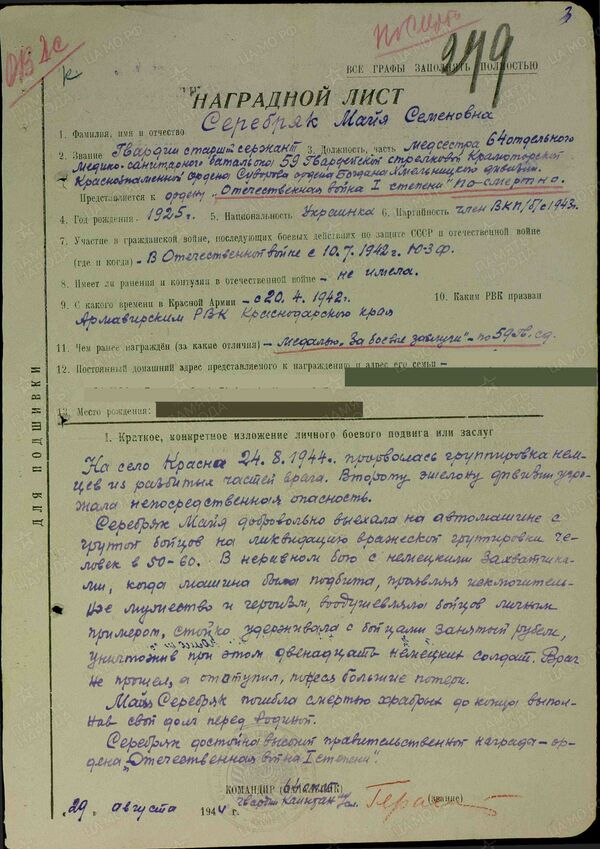 3
ОВ2с
к
Послать
279
ВСЕ ГРАФЫ ЗАПОЛНЯТЬ ПОЛНОСТЬЮ
НАГРАДНОЙ ЛИСТ
1. Фамилия, имя и отчество Серебряк Майя Семеновна
2. Звание Гвардии старший сержант 3. Должность, часть медсестра 64 отдельного
Медико-санитарного батальона 59 Гвардейской стрелковой Краматорской
Краснознаменной ордена Суворова ордена Богдана Хмельницкого дивизии.
Представляется к ордену „Отечественная война I степени" По-смертно.
4. Год рождения - 1925г. 5. Национальность Украинка 6. Партийность член ВКП/б/ с 1943г.
7. Участие в гражданской войне, последующих боевых действиях по защите СССР и отечественной войне
(где и когда) - В Отечественной войне с 10.7.1942г. Ю-З ф.
8. Имеет ли ранения и контузии в отечественной войне - не имела.
9. С какого времени в Красной Армии - с 20.4.1942г. 10. Каким РВК призван
Армавирским РВК Краснодарского края
11. Чем ранее награждён (за какие отличия) - медалью „За боевые заслуги" - по 59 Гв. сд.
12. Постоянный домашний адрес представляемого к награждению и адрес его семьи -
13. Место рождения:
I. Краткое, конкретное изложение личного боевого подвига или заслуг
На село Красна 24.8.1944г. прорвалась группировка нем-
цев из разбитых частей врага. Второму эшелону дивизии угро-
жала непосредственная опасность.
Серебряк Майя добровольно выехала на автомашине с
группой бойцов на ликвидацию вражеской группировки че-
ловек в 50-60. В неравном бою с немецкими захватчика-
ми, когда машина была подбита, проявляя исключитель-
ное мужество и героизм, воодушевляла бойцов личным
примером, стойко удерживала с бойцами занятый рубеж,
уничтожив при этом двенадцать немецких солдат. Враг
не прошел, а отступил, понеся большие потери.
Майя Серебряк погибла смертью храбрых до конца выпол-
нив свой долг перед Родиной.
Серебряк достойна высшей правительственной награды - ор-
дена „Отечественная война I степени".
КОМАНДИР
гвардии Капитан
(звание)
29 августа 1944 г.
ДЛЯ ПОДШИВКИ